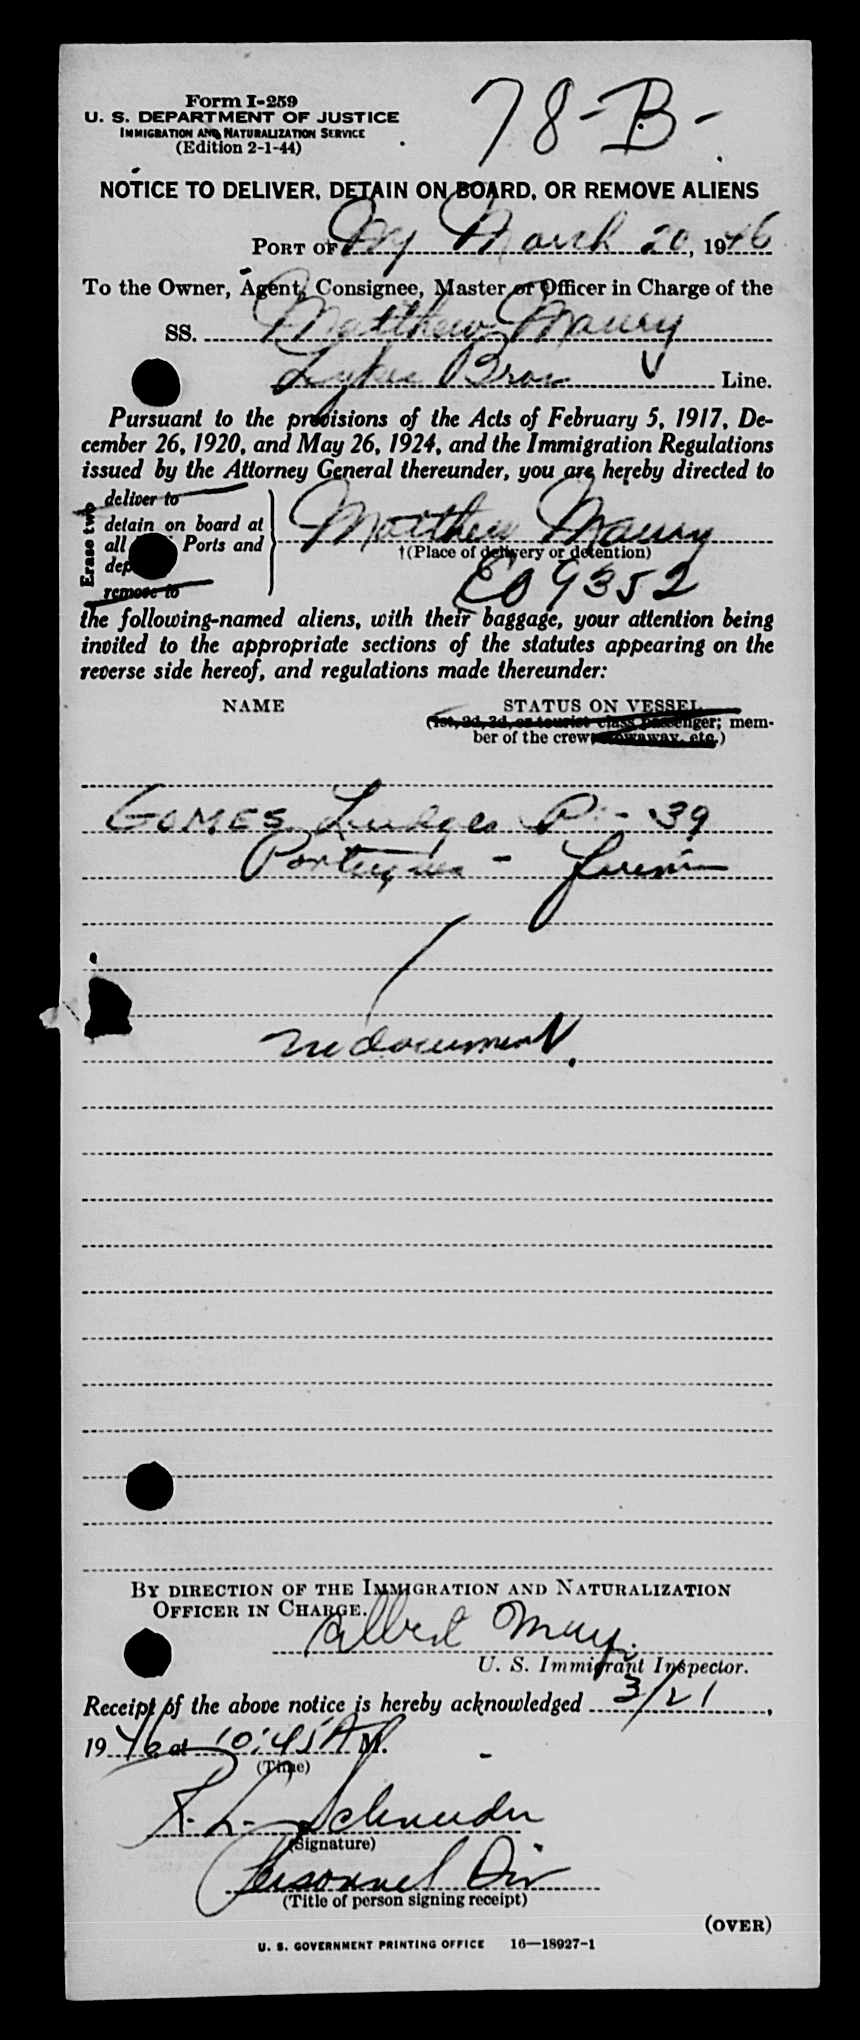 Form I-259
78-B-
U. S. DEPARTMENT OF JUSTICE
IMMIGRATION AND NATURALIZATION SERVICE
(Edition 2-1-44)
NOTICE TO DELIVER, DETAIN ON BOARD, OR REMOVE ALIENS
PORT OF NY March 20, 1946
To the Owner, Agent, Consignee, Master or Officer in Charge of the
SS. Matthew Maury
Lykes Bros Line.
Pursuant to the provisions of the Acts of February 5, 1917, De-
cember 26, 1920, and May 26, 1924, and the Immigration Regulations
issued by the Attorney General thereunder, you are hereby directed to
Erase two
deliver to
detain on board at
all Ports and
remove to
Matthew Maury
†(Place of delivery or detention)
EO 9352
the following-named aliens, with their baggage, your attention being
invited to the appropriate sections of the statutes appearing on the
reverse side hereof, and regulations made thereunder:
NAME STATUS ON VESSEL
(1st, 2d, 3d, or tourist class passenger; mem-
ber of the crew, stowaway, etc.)
GOMES Ludges P - 39
Portuguese -
no document
BY DIRECTION OF THE IMMIGRATION AND NATURALIZATION
OFFICER IN CHARGE.
Albert
U. S. Immigrant Inspector.
Receipt of the above notice is hereby acknowledged 3/21,
1946 at 10:45 A M.
(Time)
R. L. Schneider
(Signature)
Personnel Div
(Title of person signing receipt)
(OVER)
U. S. GOVERNMENT PRINTING OFFICE 16—18927-1